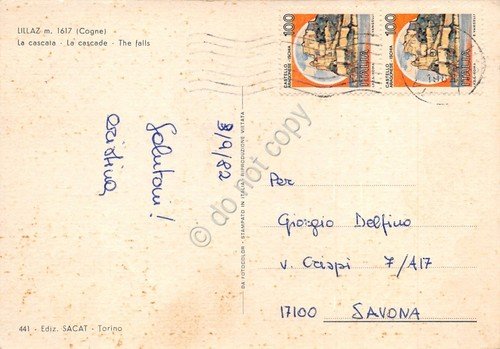 LILLAZ m. 1617 (Cogne)
La cascata - La cascade - The falls
100
CASTELLO
ARAGONESE - ISCHIA
100
CASTELLO
ARAGONESE - ISCHIA
3/9/82
Salutoni!
Cristina
DA FOTOCOLOR - STAMPATO IN ITALIA - RIPRODUZIONE VIETATA
do not copy
Per
Giorgio Delfino
v. Crispi 7/A17
17100 SAVONA
441 - Ediz. SACAT - Torino